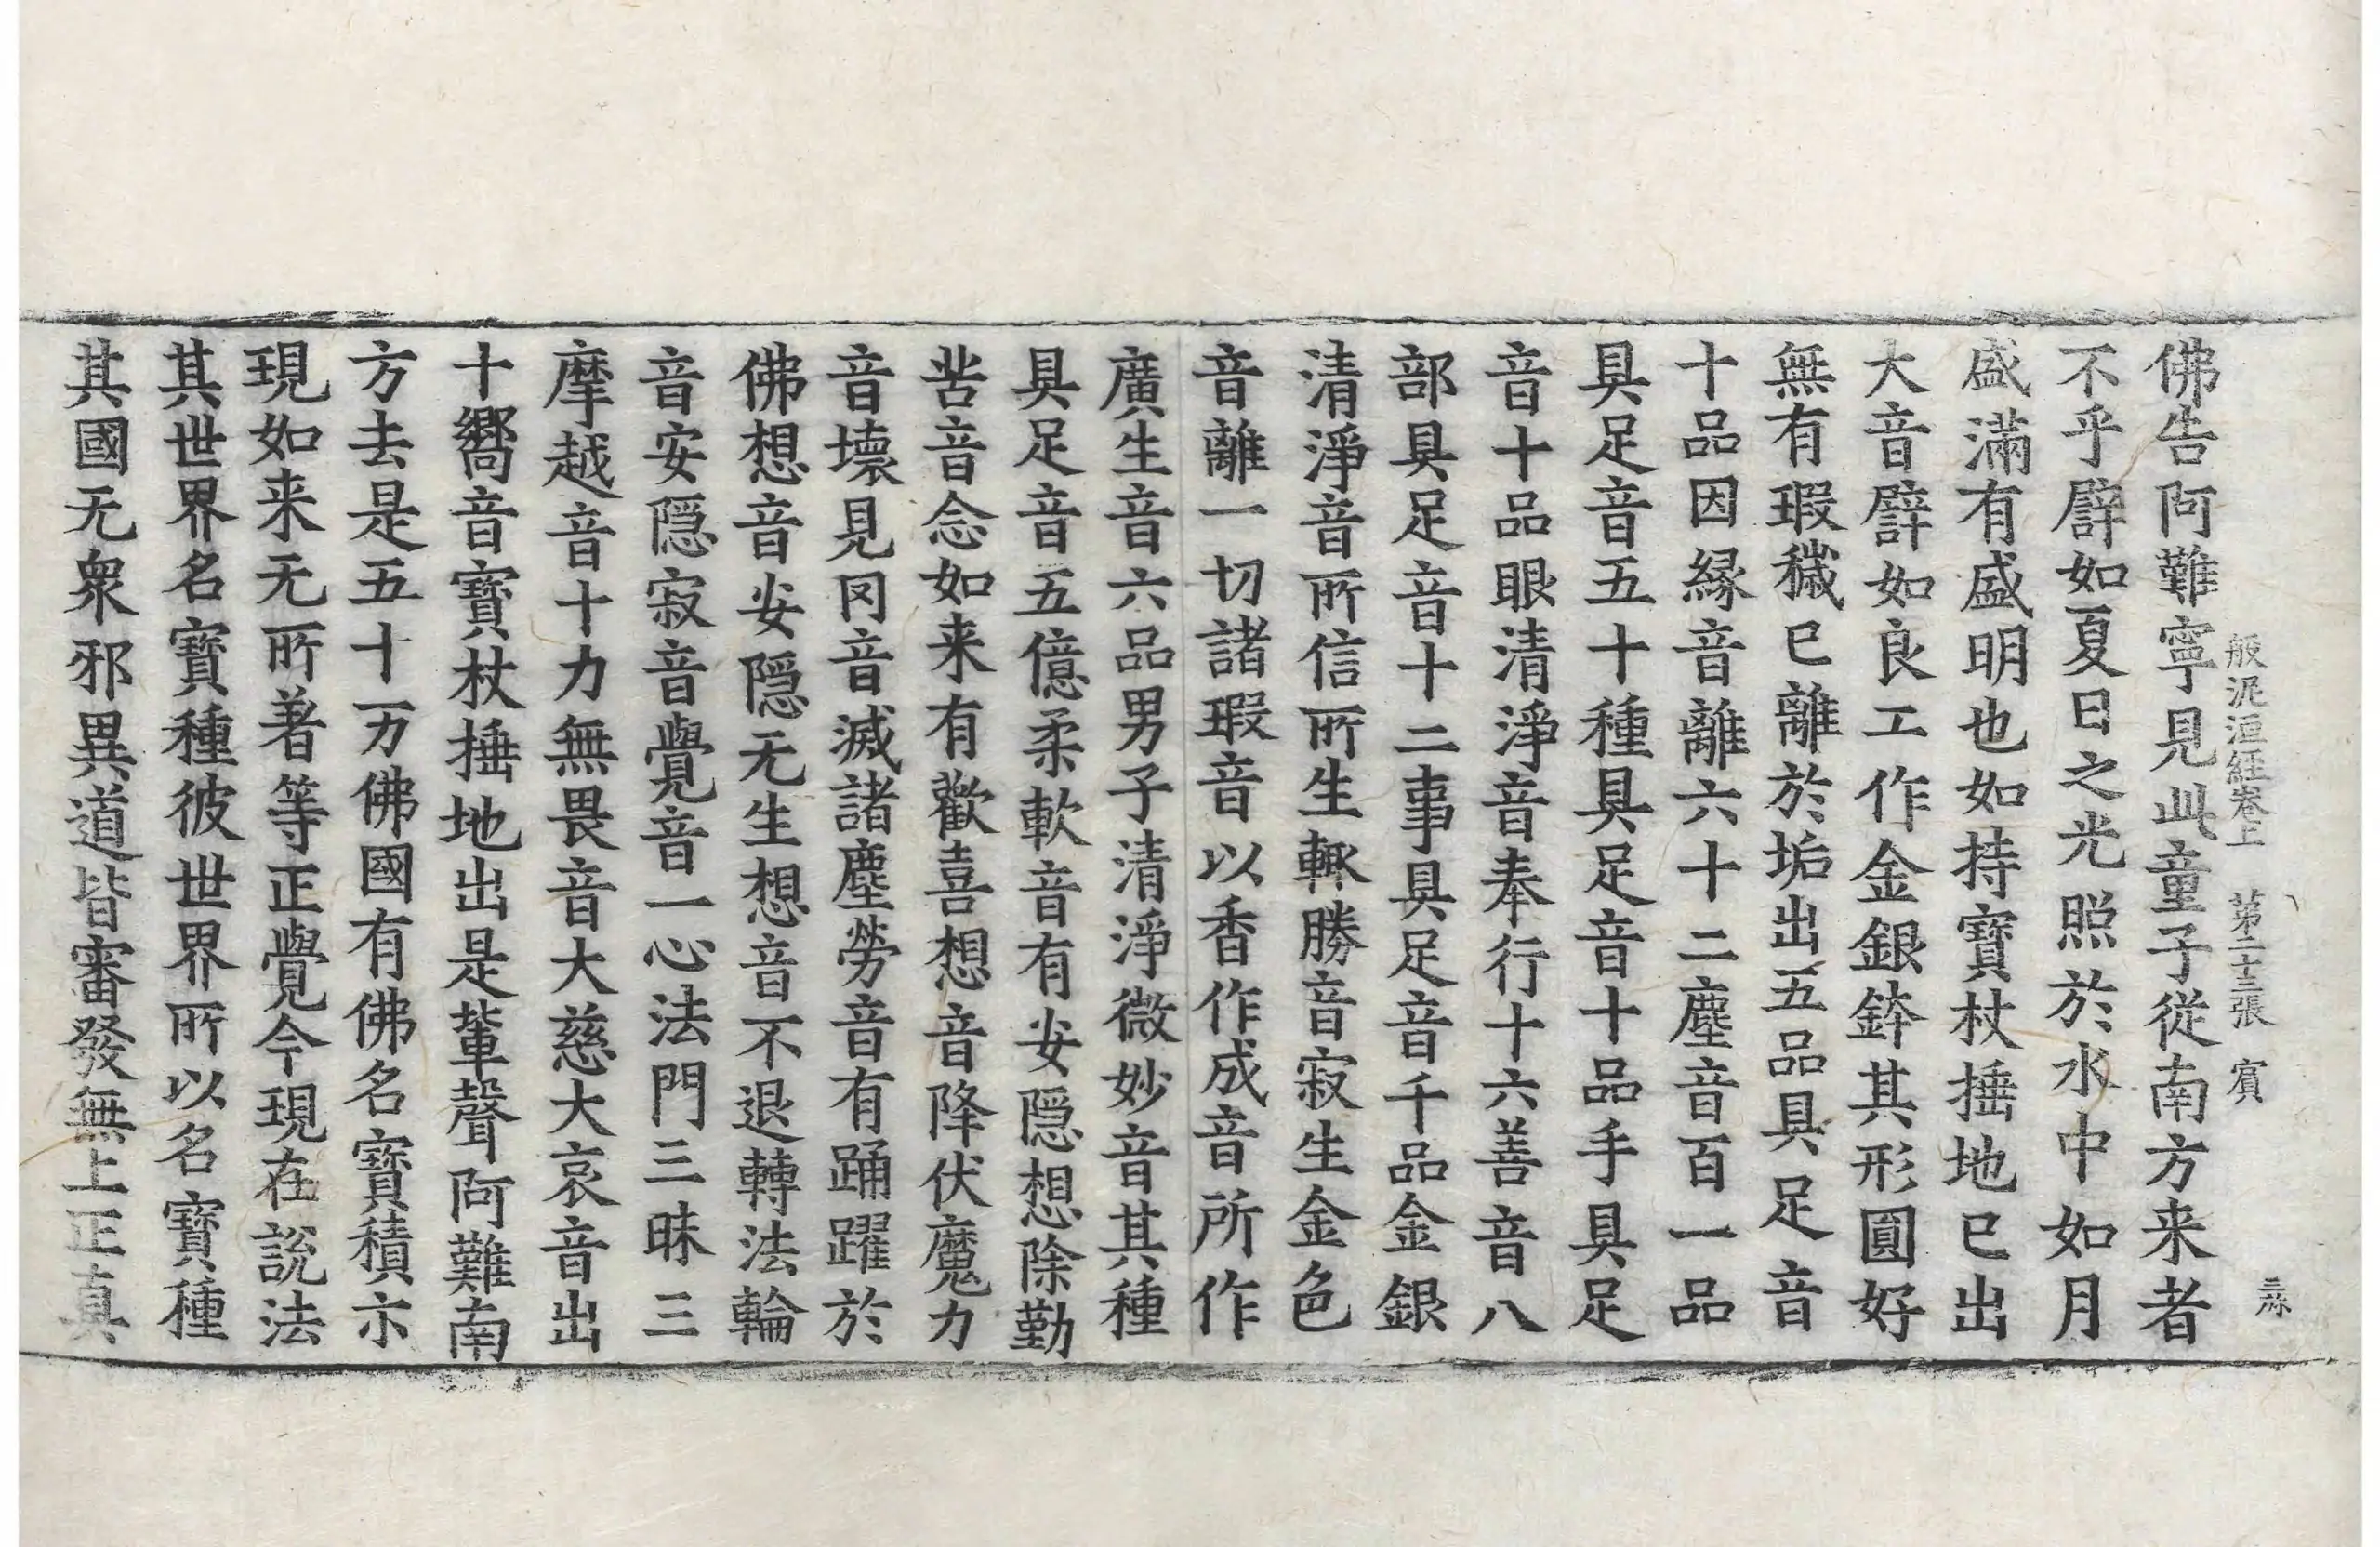 般泥洹経卷上　第二十三張　賓
佛告阿難寧見此童子從南方来者
不乎譬如夏日之光照於水中如月
盛滿有盛明也如持寶杖捶地已出
大音譬如良工作金銀鉢其形圓好
無有瑕穢已離於垢出五品具足音
十品因緣音離六十二塵音百一品
具足音五十種具足音十品手具足
音十品眼清淨音奉行十六善音八
部具足音十二事具足音千品金銀
清淨音所信所生輙勝音寂生金色
音離一切諸瑕音以香作成音所作
廣生音六品男子清淨微妙音其種
具足音五億柔軟音有安隱想除勤
苦音念如来有歡喜想音降伏魔力
音壞見罔音滅諸塵勞音有踊躍於
佛想音安隱无生想音不退轉法輪
音安隱寂音覺音一心法門三昧三
摩越音十力無畏音大慈大哀音出
十嚮音寶杖捶地出是輩聲阿難南
方去是五十一万佛國有佛名寶積亦
現如来无所著等正覺今現在說法
其世界名寶種彼世界所以名寶種
其國无衆邪異道皆審發無上正真